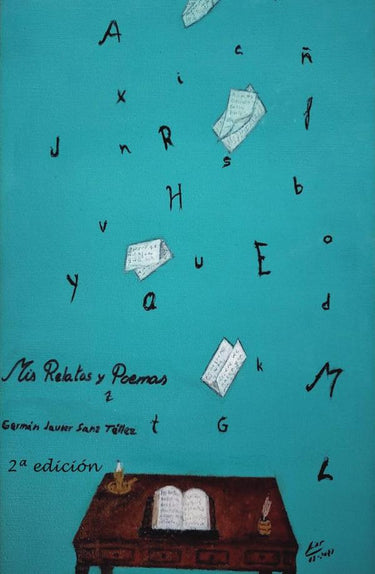 A
c
ñ
i
x
f
J
n
R
s
H
b
v
o
E
u
Y
a
d
k
Mis Relatos y Poemas
2
M
Germán Javier Sanz Téllez
t
G
2ª edición
L